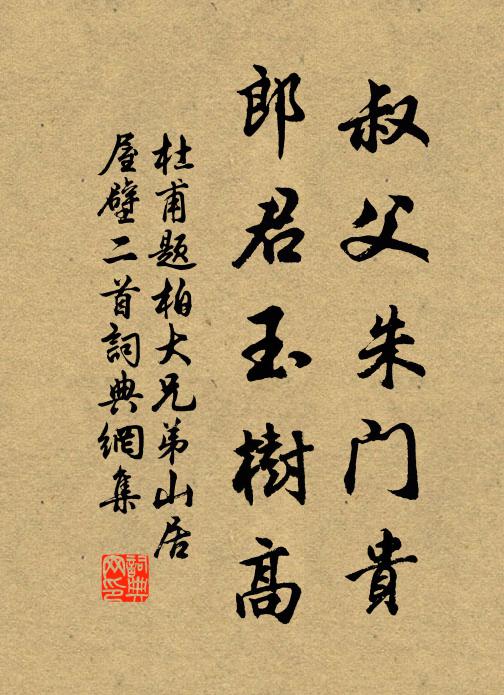 叔父朱门貴
郎君玉樹高
杜甫题柏大兄弟山居
屋壁二首詞典網集
詞典
网印